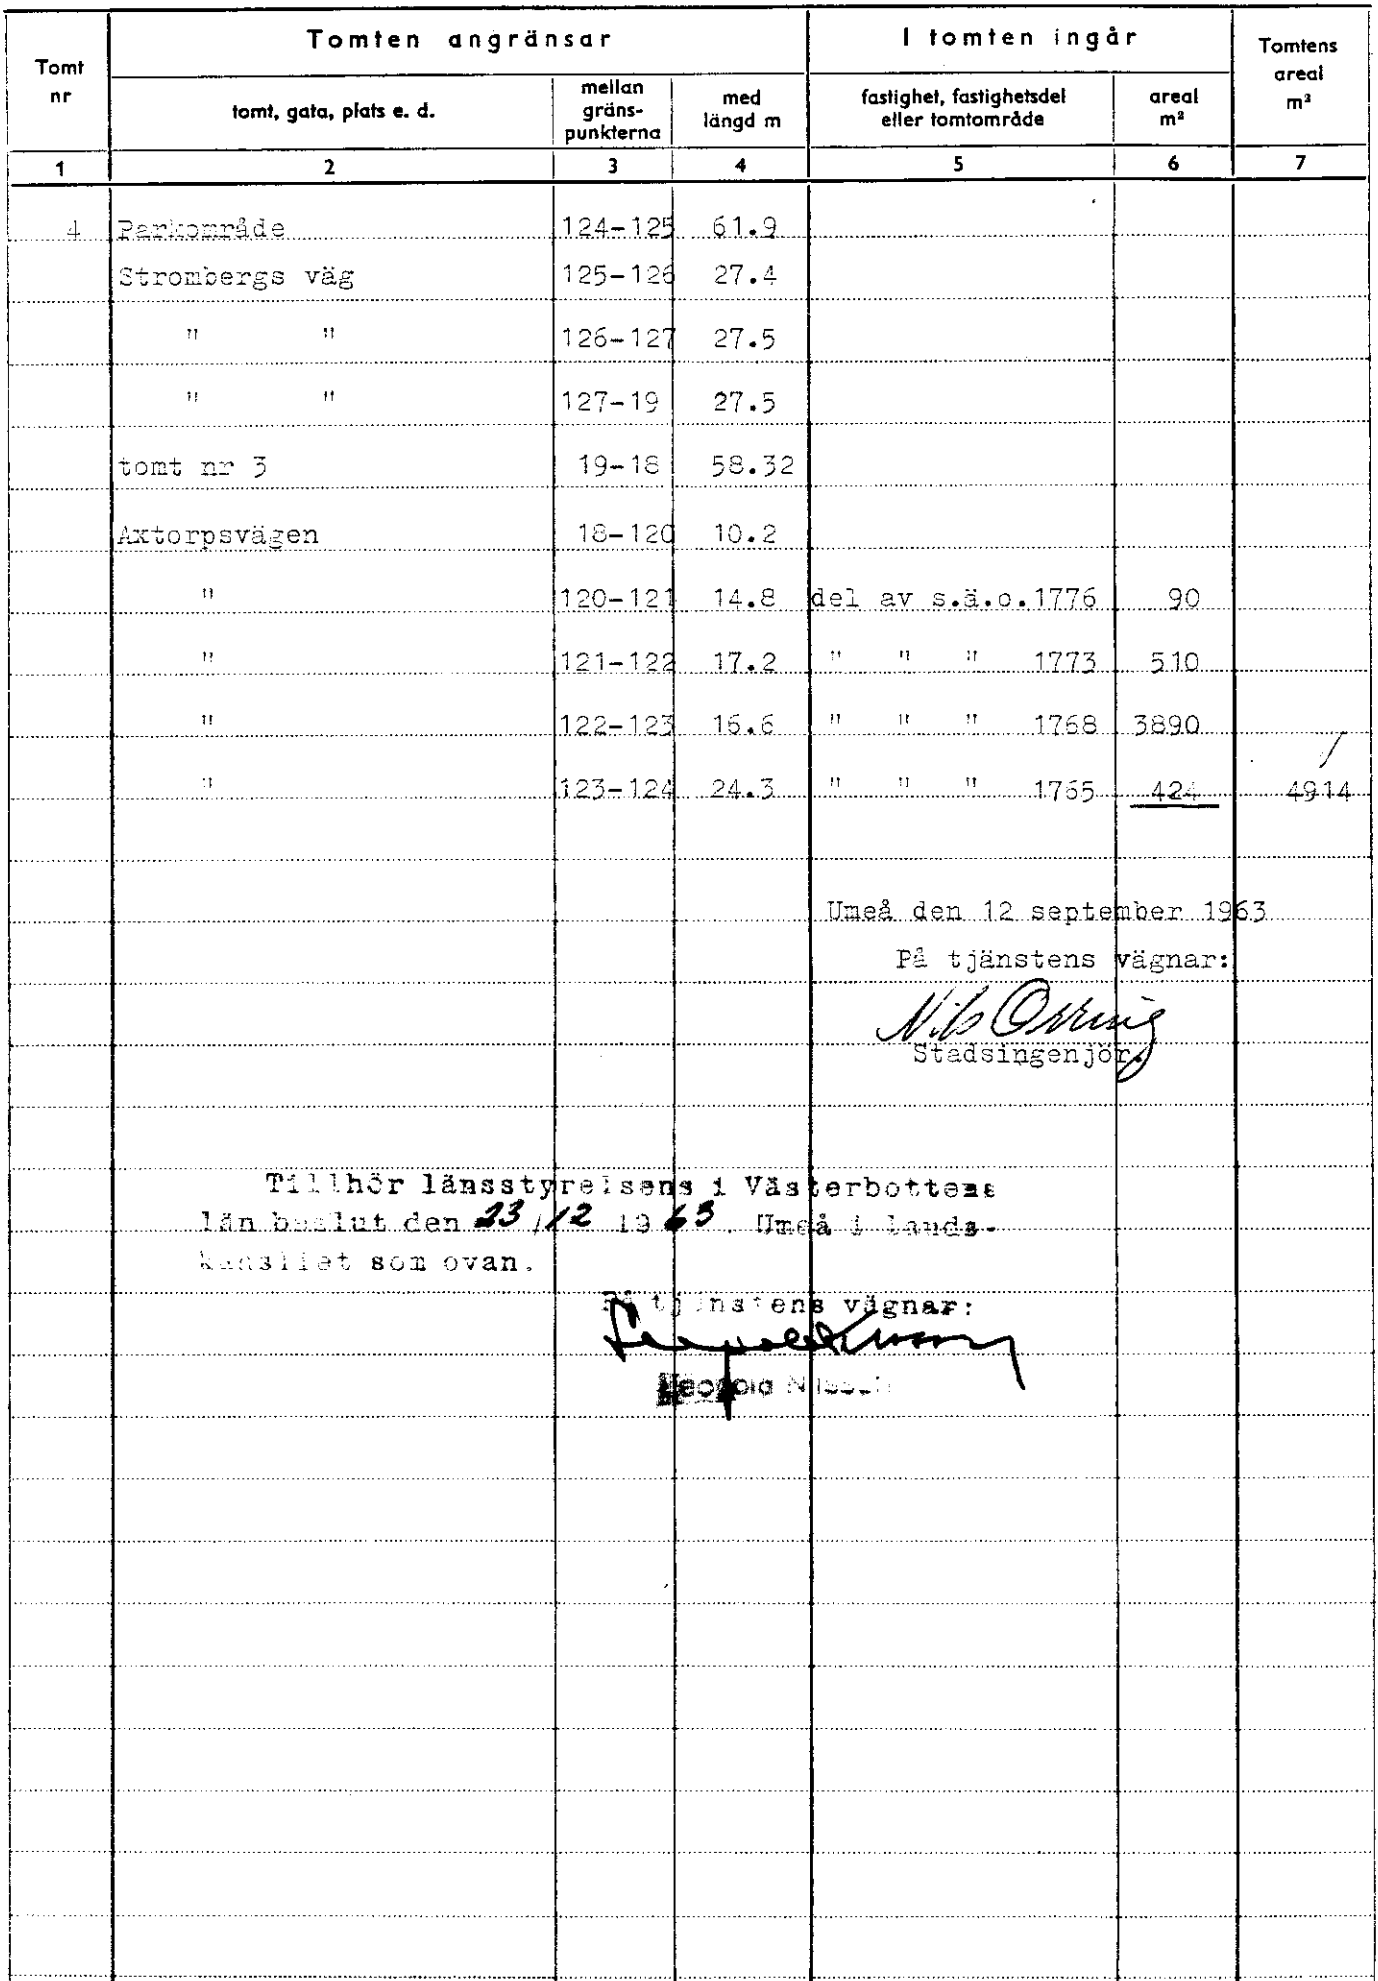 Tomt nr
Tomten angränsar
I tomten ingår
Tomtens areal m²
tomt, gata, plats e. d.
mellan gräns-punkterna
med längd m
fastighet, fastighetsdel eller tomtområde
areal m²
1 2 3 4 5 6 7
4 Parkområde 124-125 61.9
Strombergs väg 125-126 27.4
" " 126-127 27.5
" " 127-19 27.5
tomt nr 3 19-18 58.32
Axtorpsvägen 18-120 10.2
" 120-121 14.8 del av s.ä.o.1776 90
" 121-122 17.2 " " " 1773 510
" 122-123 16.6 " " " 1768 3890
" 123-124 24.3 " " " 1765 424 4914
Umeå den 12 september 1963
På tjänstens vägnar:
Nils
Stadsingenjör.
Tillhör länsstyrelsens i Västerbottens
län beslut den 23/12 1963. Umeå i lands-
kansliet som ovan.
På tjänstens vägnar:
Leopold
Leopold Nilsson